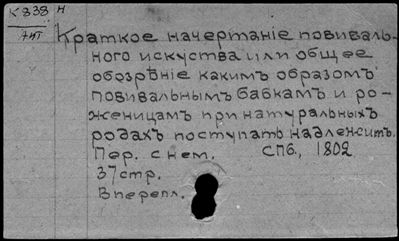 К 838 н
Краткое начертанiе повиваль-
ного искуства или общее
обозрѣнiе какимъ образомъ
повивальнымъ бабкамъ и ро-
женицамъ при натуральныхъ
родахъ поступать надлежитъ.
Пер. с нем. СПб, 1802
37 стр.
В перепл.